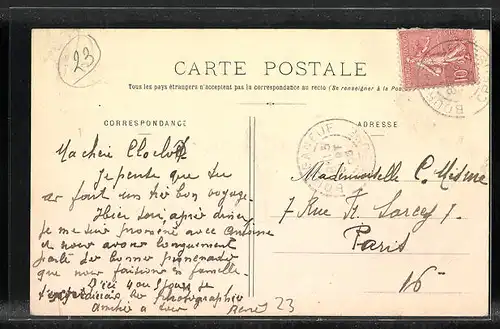 23
CARTE POSTALE
Tous les pays étrangers n'acceptent pas la correspondance au recto (Se renseigner à la Poste)
CORRESPONDANCE
ADRESSE
10
BOURGANEUF
Ma chère Cloclo
Je pense que tu
as fait un très bon voyage.
Hier soir, après dîner
je me suis promené avec
et nous avons longuement
parlé des bonnes promenades
que nous faisions en famille
D'ici 4 ou 5 jours je
les photographies
Amitié à tous René
23
Mademoiselle C. Mesme
7 Rue Fr. Sarcey.
Paris
16e